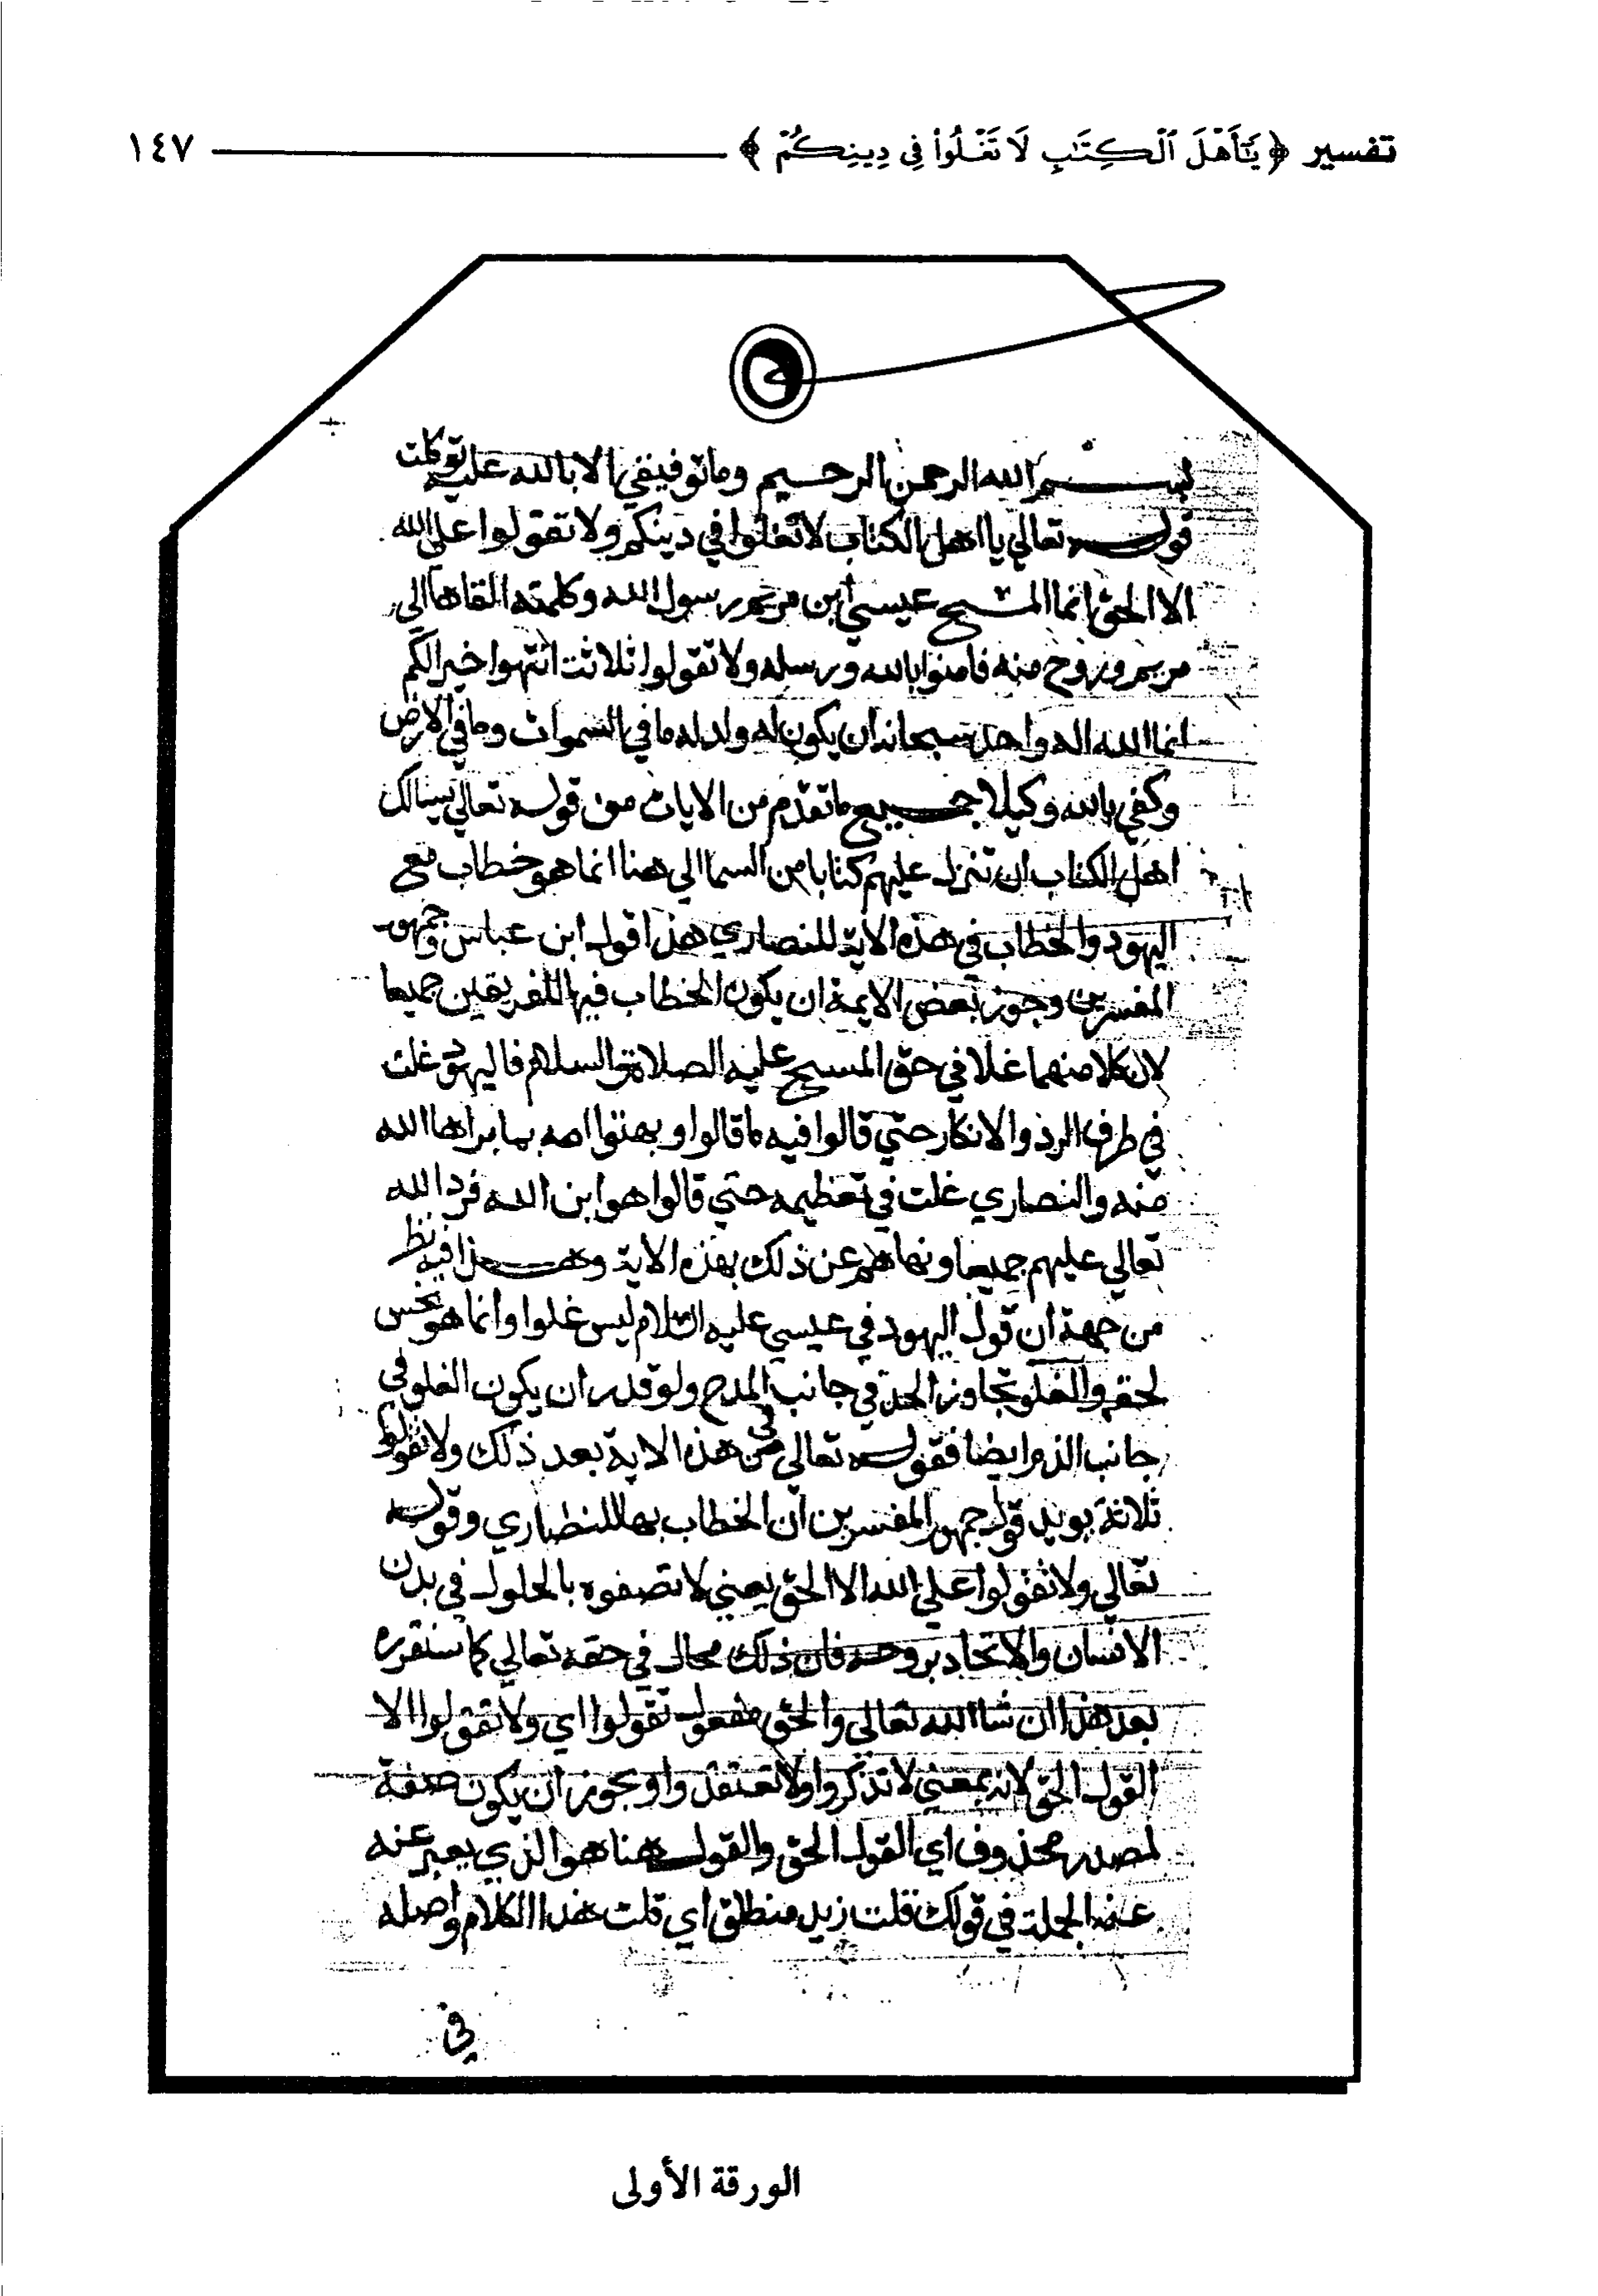 تفسير ﴿ يَٰٓأَهْلَ ٱلْكِتَٰبِ لَا تَغْلُوا۟ فِى دِينِكُمْ ﴾ ١٤٧
بسم الله الرحمن الرحيم وما توفيقي الا بالله عليه توكلت
قوله تعالي يا اهل الكتاب لا تغلوا في دينكم ولا تقولوا علي الله
الا الحق انما المسيح عيسي ابن مريم رسول الله وكلمته القاها الي
مريم وروح منه فامنوا بالله ورسله ولا تقولوا ثلاثت انتهوا خيرا لكم
انما الله اله واحد سبحانه ان يكون له ولد له ما في السموات وما في الارض
وكفي بالله وكيلا جميع ما تقدم من الايات من قوله تعالي يسالك
اهل الكتاب ان تنزل عليهم كتابا من السما الي هنا انما هو خطاب مع
اليهود والخطاب في هذه الاية للنصاري هذا قول ابن عباس وجمهور
المفسرين وجوز بعض الايمة ان يكون الخطاب فيها للفريقين جميعا
لان كلا منهما غلا في حق المسيح عليه الصلاة والسلام فاليهود غلت
في طرف الرد والانكار حتي قالوا فيه ما قالوا وبهتوا امه بما براها الله
منه والنصاري غلت في تعظيمه حتي قالوا هو ابن الله فرد الله
تعالي عليهم جميعا ونهاهم عن ذلك بهذه الاية وهذا فيه نظر
من جهة ان قول اليهود في عيسي عليه السلام ليس غلوا وانما هو بخس
لحقه والغلو تجاوز الحد في جانب المدح ولو قدر ان يكون الغلو في
جانب الذم ايضا فقوله تعالي في هذه الاية بعد ذلك ولا تقولوا
ثلاثة يويد قول جمهور المفسرين ان الخطاب بها للنصاري وقوله
تعالي ولا تقولوا علي الله الا الحق يعني لا تصفوه بالحلول في بدن
الانسان والاتحاد بروحه فان ذلك محال في حقه تعالي كما سنقرره
بعد هذا ان شا الله تعالي والحق مفعول تقولوا اي ولا تقولوا الا
القول الحق لانه بمعني لا تذكروا ولا تعتقدوا ويجوز ان يكون صفة
لمصدر محذوف اي القول الحق والقول هنا هو الذي يعبر عنه
عنه الجملة في قولك قلت زيد منطلق اي قلت هذا الكلام واصله
في
الورقة الأولى